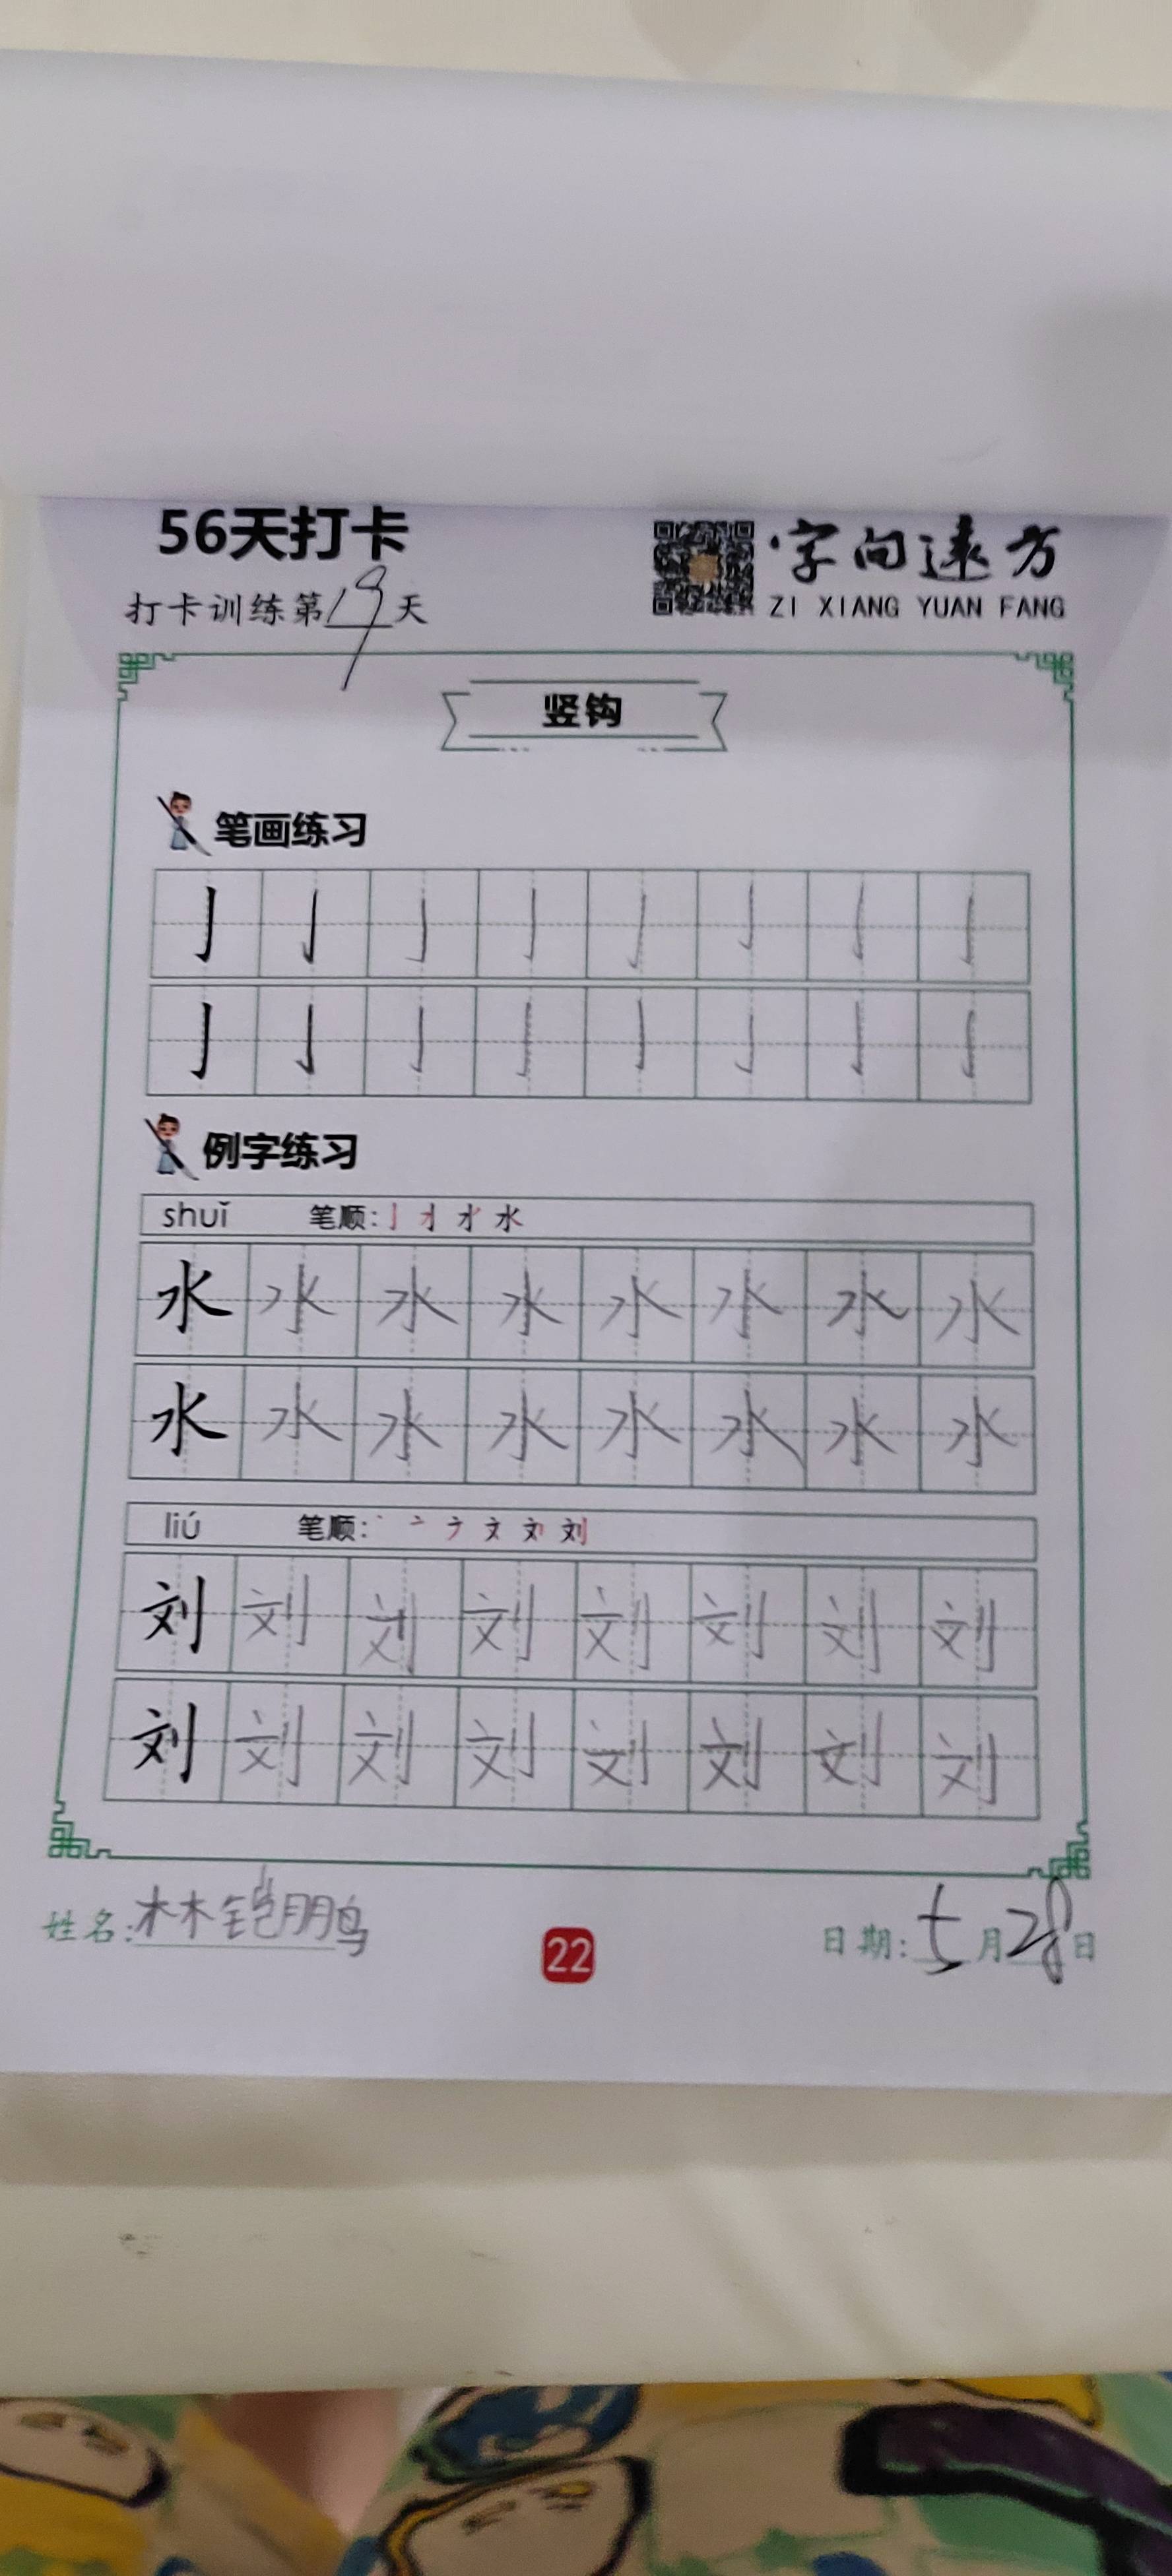 56天打卡
字向远方
打卡训练第19天
ZI XIANG YUAN FANG
竖钩
笔画练习
亅亅亅亅亅亅亅亅
亅亅亅亅亅亅亅亅
例字练习
shuǐ 笔顺:
水水水水水水水水
水水水水水水水水
liú 笔顺:
刘刘刘刘刘刘刘刘
刘刘刘刘刘刘刘刘
姓名:林铠朋鸟
22
日期:5月28日